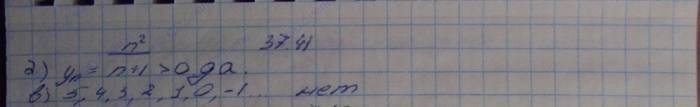 37.41
а) yₙ = n²/(n+1) > 0 да.
в) 5, 4, 3, 2, 1, 0, -1... нет